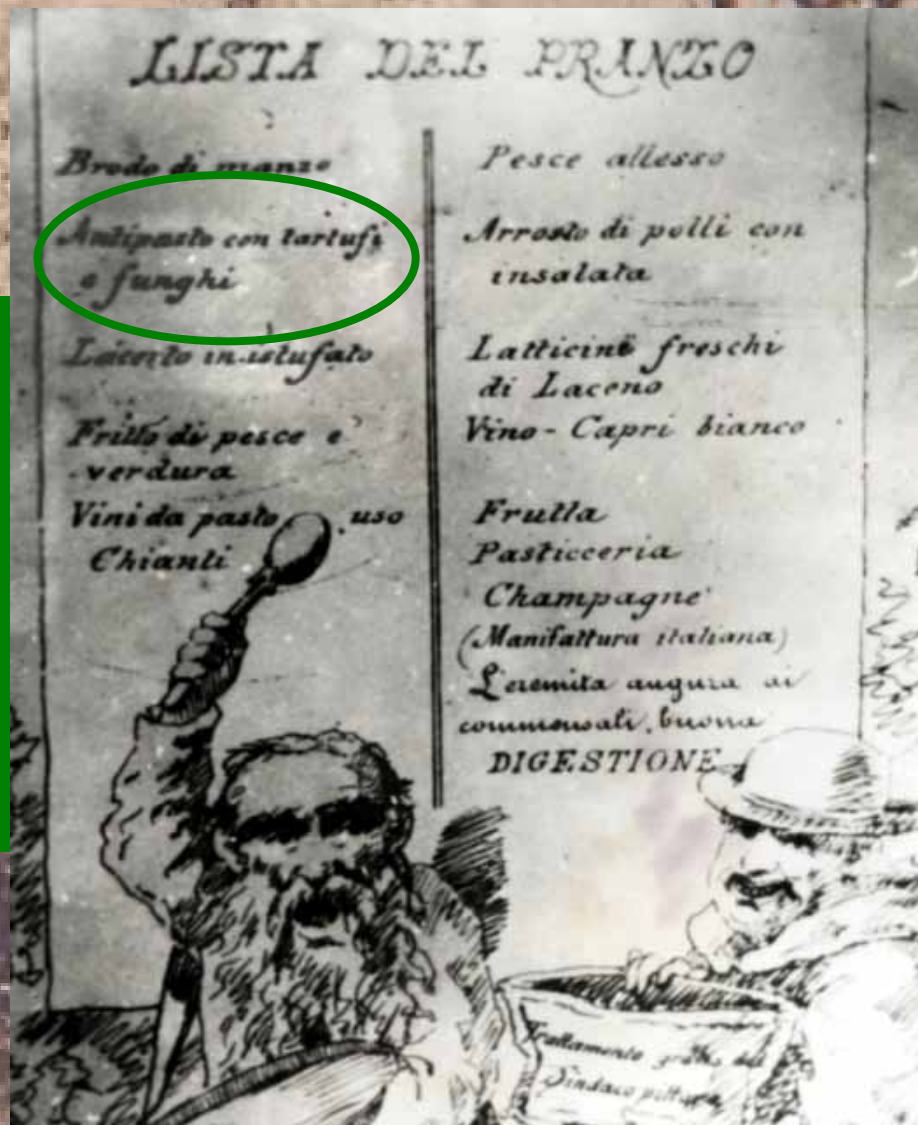 LISTA DEL PRANZO
Brodo di manzo
Antipasto con tartufi
e funghi
Lacerto in istufato
Fritto di pesce e
verdura
Vini da pasto, uso
Chianti
Pesce allesso
Arrosto di polli con
insalata
Latticini freschi
di Laceno
Vino - Capri bianco
Frutta
Pasticceria
Champagne
(Manifattura italiana)
L'eremita augura ai
commensali, buona
DIGESTIONE
Trattamento
Sindaco